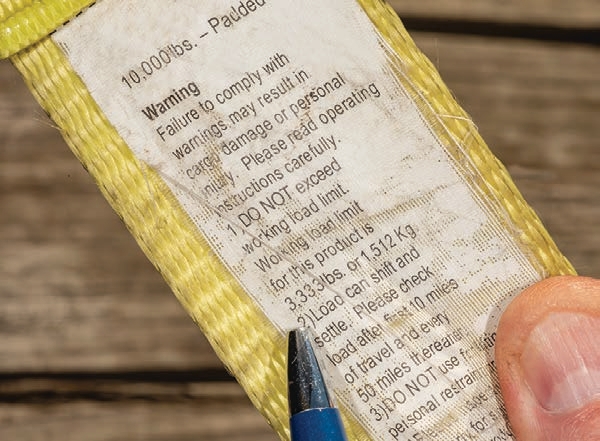 10,000 lbs. – Padded
Warning
Failure to comply with
warnings may result in
cargo damage or personal
injury. Please read operating
instructions carefully.
1. DO NOT exceed
working load limit.
Working load limit
for this product is
3,333 lbs. or 1,512 Kg.
2) Load can shift and
settle. Please check
load after first 10 miles
of travel and every
50 miles thereafter
3) DO NOT use for
personal restraint